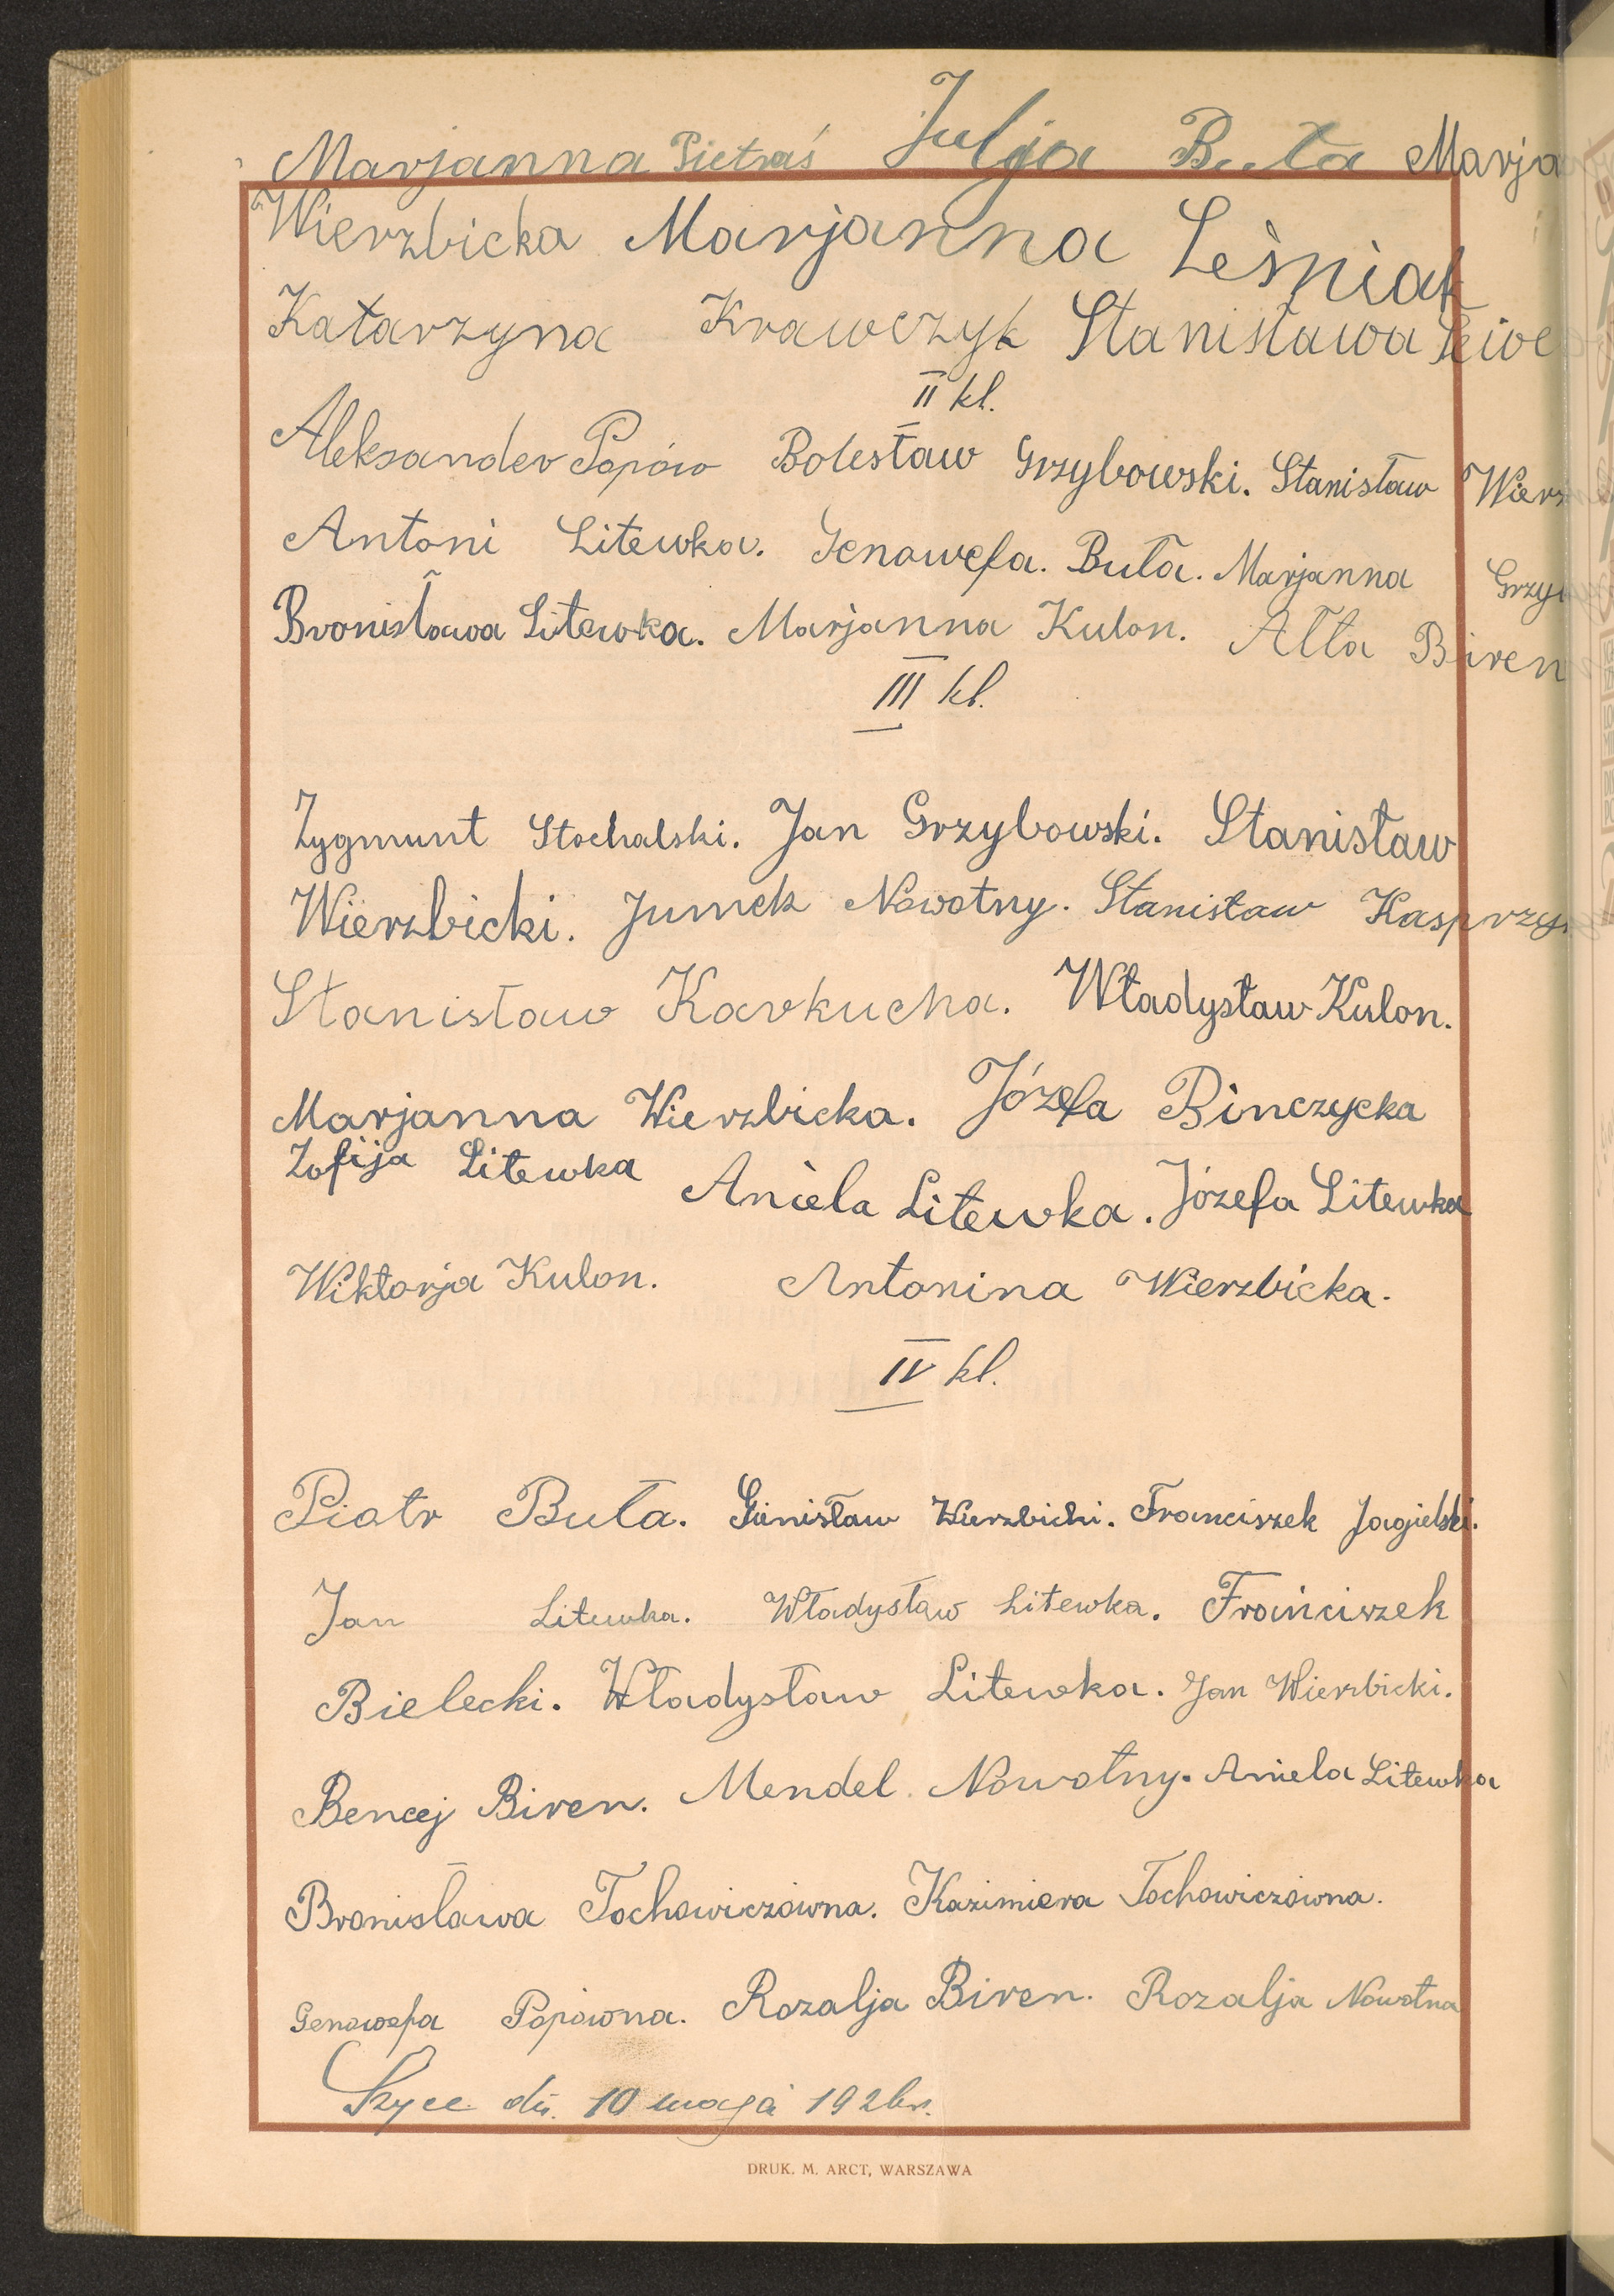 Marjanna Pietraś Julja Buła Marja
Wierzbicka Marjanna Leśniak
Katarzyna Krawczyk Stanisława
II kl.
Aleksander Popów Bolesław Grzybowski. Stanisław Wierz
Antoni Litewka. Genowefa. Buła. Marjanna Grzy
Bronisława Litewka. Marjanna Kulon. Ałła Biren
III kl.
Zygmunt Stochalski. Jan Grzybowski. Stanisław
Wierzbicki. Jumek Nowotny. Stanisław Kasprzy
Stanisław Karkucha. Władysław Kulon.
Marjanna Wierzbicka. Józefa Binczycka
Zofija Litewka Aniela Litewka. Józefa Litewka
Wiktorja Kulon. Antonina Wierzbicka.
IV kl.
Piotr Buła. Stanisław Wierzbicki. Franciszek Jagielski.
Jan Litewka. Władysław Litewka. Franciszek
Bielecki. Władysław Litewka. Jan Wierzbicki.
Bencej Biren. Mendel Nowotny. Aniela Litewka
Bronisława Tochowiczówna. Kazimiera Tochowiczówna.
Genowefa Popówna. Rozalja Biren. Rozalja Nowotna
Szyce dn. 10 maja 1926r.
DRUK. M. ARCT, WARSZAWA